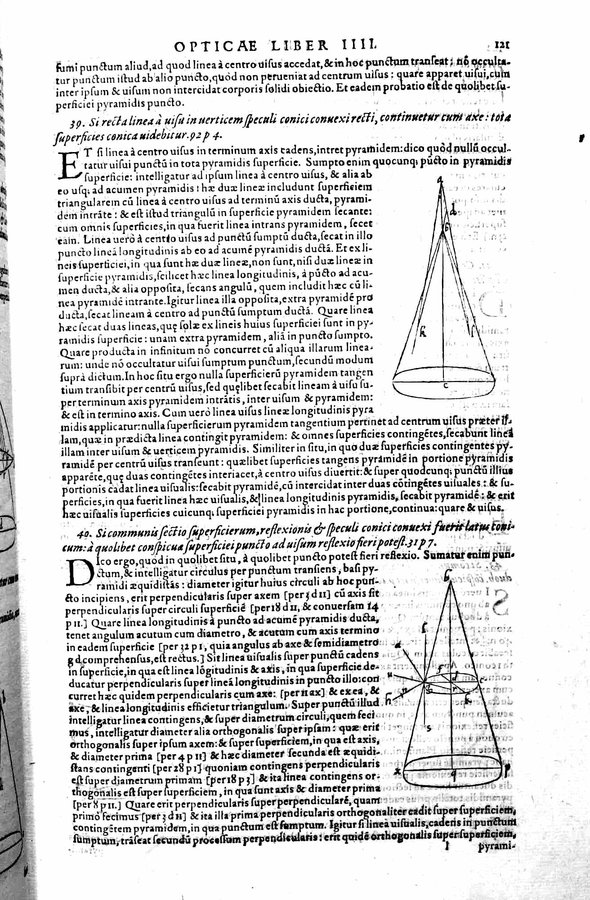 OPTICAE LIBER IIII. 121
fumi punctum aliud, ad quod linea à centro uisus accedat, & in hoc punctum transeat: nõ occulta-
tur punctum istud ab alio puncto, quòd non perueniat ad centrum uisus: quare apparet uisui, cum
inter ipsum & uisum non intercidat corporis solidi obiectio. Et eadem probatio est de quolibet su-
perficiei pyramidis puncto.
39. Si recta linea à uisu in uerticem speculi conici conuexi recti, continuetur cum axe: tota
superficies conica uidebitur. 92 p 4.
ET si linea à centro uisus in terminum axis cadens, intret pyramidem: dico quòd nullũ occul-
tatur uisui punctũ in tota pyramidis superficie. Sumpto enim quocunq; pũcto in pyramidis
superficie: intelligatur ad ipsum linea à centro uisus, & alia ab
eo usq; ad acumen pyramidis: hæ duæ lineæ includunt superficiem
triangularem cũ linea à centro uisus ad terminũ axis ducta, pyrami-
dem intrãte: & est istud triangulũ in superficie pyramidem secante:
cum omnis superficies, in qua fuerit linea intrans pyramidem, secet
eam. Linea uerò à centro uisus ad punctũ sumptũ ducta, secat in illo
puncto lineã longitudinis ab eo ad acumẽ pyramidis ductã. Et ex li-
neis superficiei, in qua sunt hæ duæ lineæ, non sunt, nisi duæ lineæ in
superficie pyramidis, scilicet hæc linea longitudinis, à pũcto ad acu-
men ducta, & alia opposita, secans angulũ, quem includit hæc cũ li-
nea pyramidẽ intrante. Igitur linea illa opposita, extra pyramidẽ pro
ducta, secat lineam à centro ad punctũ sumptum ductã. Quare linea
hæc secat duas lineas, quę solæ ex lineis huius superficiei sunt in py-
ramidis superficie: unam extra pyramidem, aliã in puncto sumpto.
Quare producta in infinitum nõ concurret cũ aliqua illarum linea-
rum: unde nõ occultatur uisui sumptum punctum, secundũ modum
suprà dictum. In hoc situ ergo nulla superficierũ pyramidem tangen
tium transibit per centrũ uisus, sed quęlibet secabit lineam à uisu su-
per terminum axis pyramidem intrãtis, inter uisum & pyramidem:
& est in termino axis. Cum uerò linea uisus lineæ longitudinis pyra
midis applicatur: nulla superficierum pyramidem tangentium pertinet ad centrum uisus præter il-
lam, quæ in prædicta linea contingit pyramidem: & omnes superficies contingẽtes, secabunt lineã
illam inter uisum & uerticem pyramidis. Similiter in situ, in quo duæ superficies contingentes py-
ramidẽ per centrũ uisus transeunt: quælibet superficies tangens pyramidẽ in portione pyramidis
apparẽte, quę duas contingẽtes interiacet, à centro uisus diuertit: & super quodcunq; punctũ illius
portionis cadat linea uisualis: secabit pyramidẽ, cũ intercidat inter duas cõtingẽtes uisuales: & su-
perficies, in qua fuerit linea hæc uisualis, & linea longitudinis pyramidis, secabit pyramidẽ: & erit
hæc uisualis superficies cuicunq; superficiei pyramidis in hac portione, continua: quare & uisus.
40. Si communis sectio superficierum, reflexionis & speculi conici conuexi fuerit latus coni-
cum: à quolibet conspicuæ superficiei puncto ad uisum reflexio fieri potest. 31 p 7.
DIco ergo, quòd in quolibet situ, à quolibet puncto potest fieri reflexio. Sumatur enim pun-
ctum, & intelligatur circulus per punctum transiens, basi py-
ramidi æquidistãs: diameter igitur huius circuli ab hoc pun-
cto incipiens, erit perpendicularis super axem [per 3 d 11] cũ axis sit
perpendicularis super circuli superficiẽ [per 18 d 11, & conuersam 14
p 11.] Quare linea longitudinis à puncto ad acumẽ pyramidis ducta,
tenet angulum acutum cum diametro, & acutum cum axis termino
in eadem superficie [per 32 p 1, quia angulus ab axe & semidiametro
g d comprehensus, est rectus.] Sit linea uisualis super punctũ cadens
in superficie, in qua est linea lõgitudinis & axis, in qua superficie de-
ducatur perpendicularis super lineã longitudinis in puncto illo: con
curret hæc quidem perpendicularis cum axe: [per 11 ax] & ex ea, &
axe, & linea longitudinis efficietur triangulum. Super punctũ illud
intelligatur linea contingens, & super diametrum circuli, quem feci
mus, intelligatur diameter alia orthogonalis super ipsam: quæ erit
orthogonalis super ipsum axem: & super superficiem, in qua est axis,
& diameter prima [per 4 p 11] & hæc diameter secunda est æquidi-
stans contingenti [per 28 p 1] quoniam contingens perpendicularis
est super diametrum primam [per 18 p 3] & ita linea contingens or-
thogonalis est super superficiem, in qua sunt axis & diameter prima
[per 8 p 11.] Quare erit perpendicularis super perpendicularẽ, quam
primò fecimus [per 3 d 11] & ita illa prima perpendicularis orthogonaliter cadit super superficiem,
contingẽtem pyramidem, in qua punctum est sumptum. Igitur si linea uisualis, cadens in punctum
sumptum, trãseat secundũ processum perpendicularis: erit quidẽ orthogonalis super superficiem,
l pyrami-